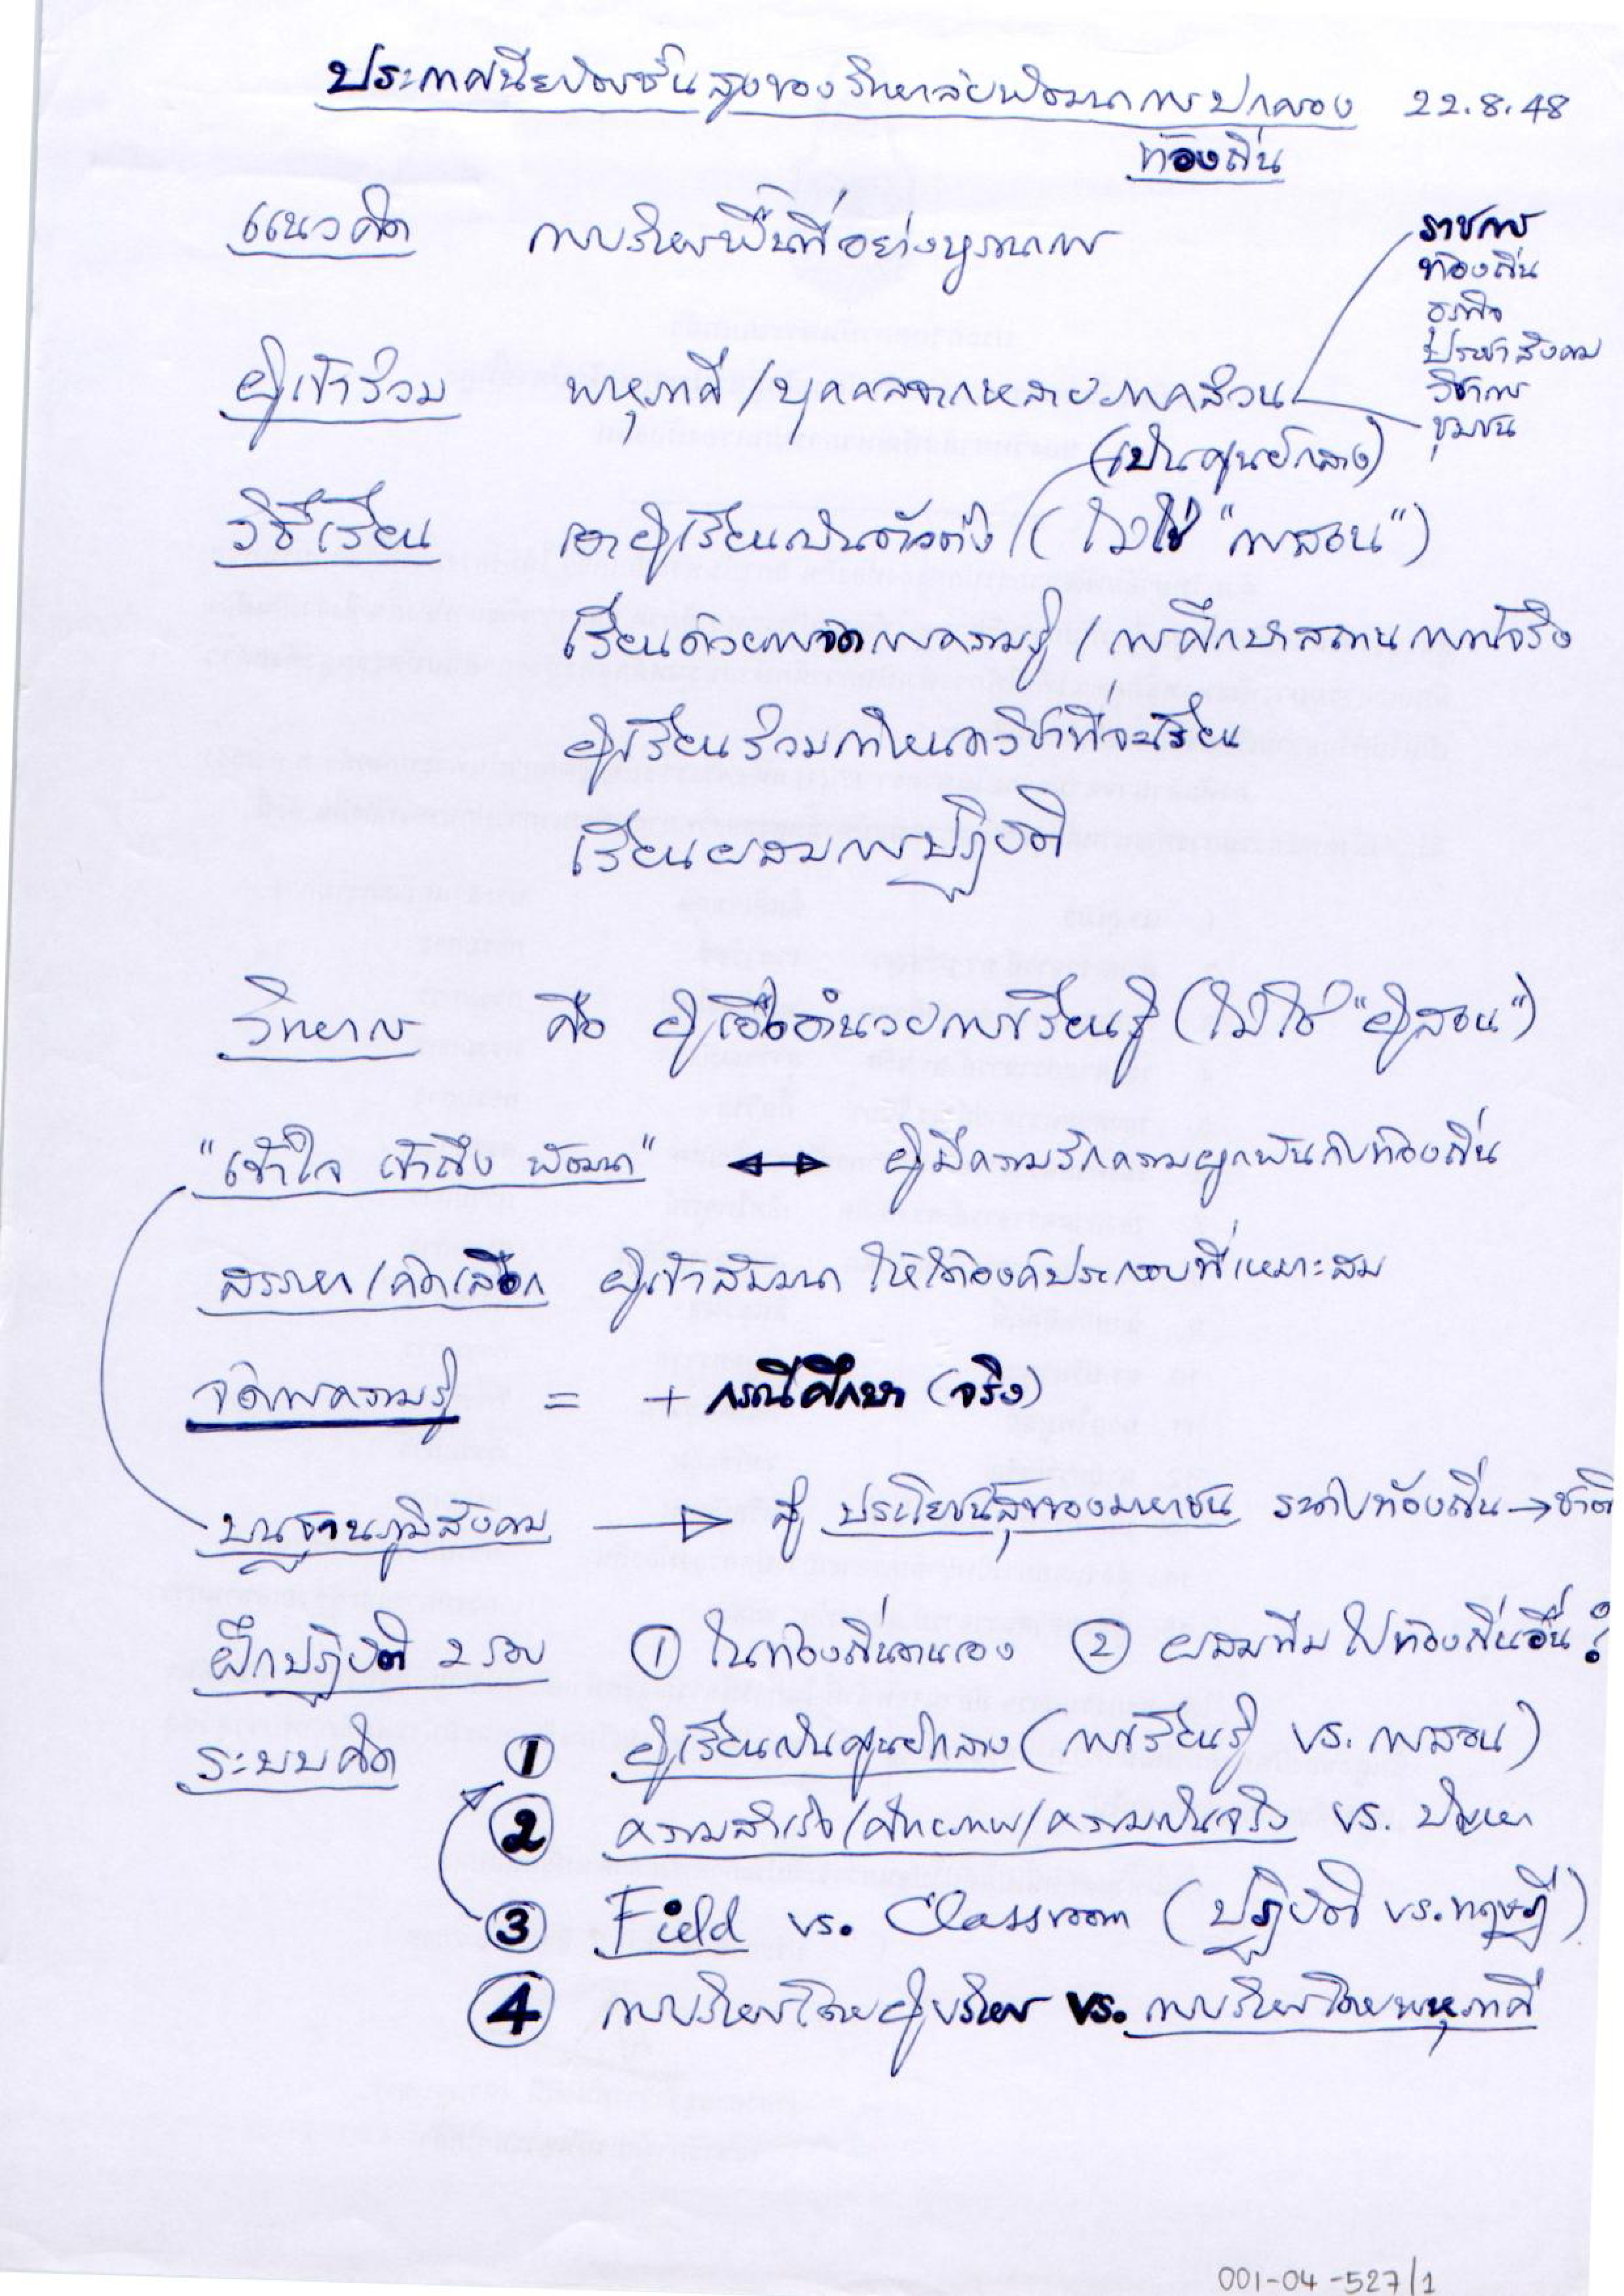 ประกาศนียบัตรชั้นสูงของวิทยาลัยพัฒนาการปกครอง 22.8.48
ท้องถิ่น
แนวคิด การบริหารพื้นที่อย่างบูรณาการ
ราชการ
ท้องถิ่น
ธุรกิจ
ประชาสังคม
วิชาการ
ชุมชน
ผู้เข้าร่วม พหุภาคี/บุคคลจากหลายภาคส่วน
(เป็นศูนย์กลาง)
วิธีเรียน เอาผู้เรียนเป็นตัวตั้ง (ไม่ใช่ "การสอน")
เรียนด้วยการจัดการความรู้/การศึกษาสถานการณ์จริง
ผู้เรียนร่วมกำหนดวิชาที่จะเรียน
เรียนผสมการปฏิบัติ
วิทยากร คือ ผู้เอื้ออำนวยการเรียนรู้ (ไม่ใช่ "ผู้สอน")
"เข้าใจ เข้าถึง พัฒนา" ↔ ผู้มีความรักความผูกพันกับท้องถิ่น
สรรหา/คัดเลือก ผู้เข้าสัมมนา ให้ได้องค์ประกอบที่เหมาะสม
จัดการความรู้ = + กรณีศึกษา (จริง)
บนฐานภูมิสังคม → สู่ ประโยชน์สุขของมหาชน ระดับท้องถิ่น → ชาติ
ฝึกปฏิบัติ 2 รอบ ① ในท้องถิ่นตนเอง ② ผสมทีม ไปท้องถิ่นอื่น?
ระบบคิด ① ผู้เรียนเป็นศูนย์กลาง (การเรียนรู้ vs. การสอน)
② ความสำเร็จ/ศักยภาพ/ความเป็นจริง vs. ปัญหา
③ Field vs. Classroom (ปฏิบัติ vs. ทฤษฎี)
④ การบริหารโดยผู้บริหาร vs. การบริหารโดยพหุภาคี
001-04-527/1